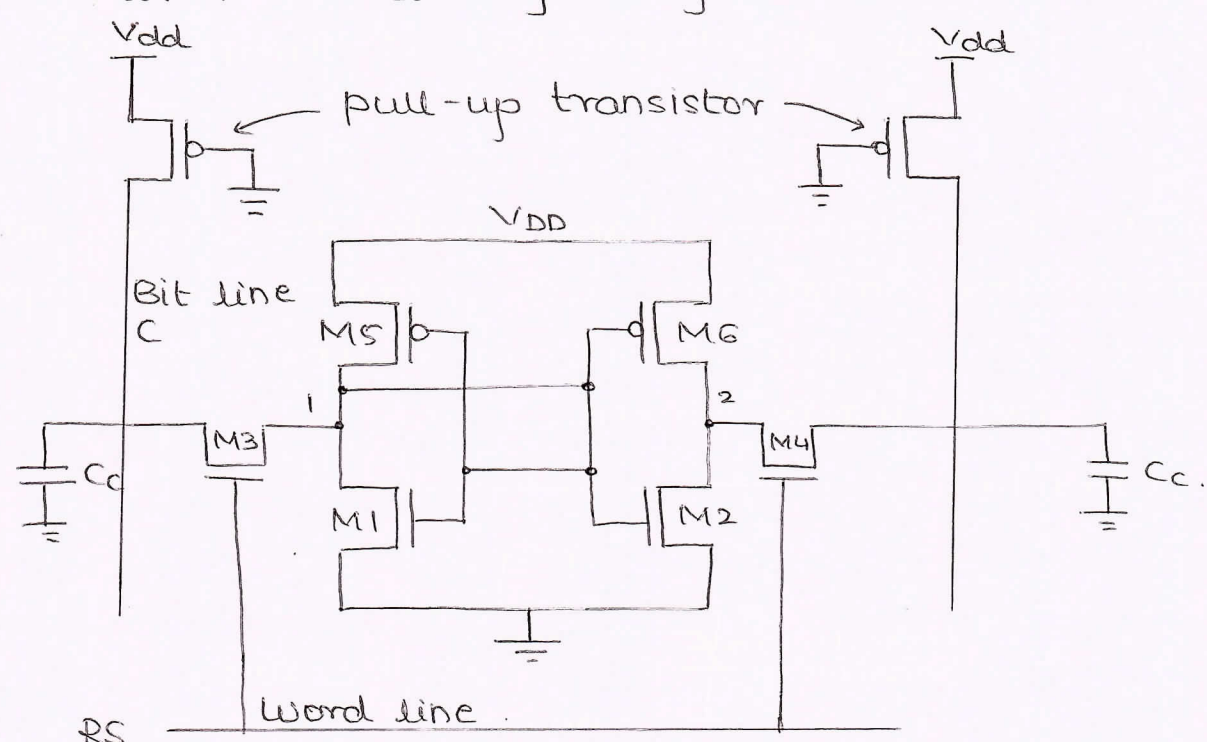 Vdd Vdd
pull-up transistor
VDD
Bit line
C
M5 M6
1 2
M3 M4
Cc Cc.
M1 M2
Word line.
RS